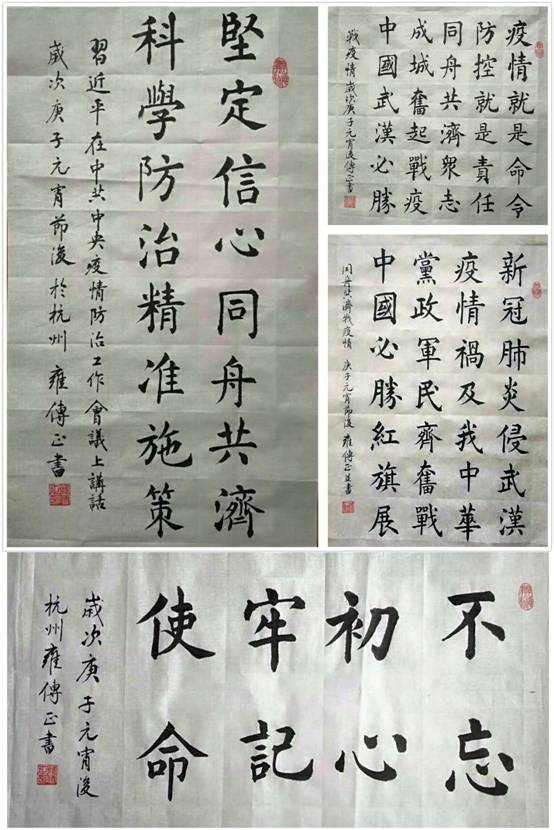 堅定信心同舟共濟
科學防治精准施策
習近平在中共中央疫情防治工作會議上講話
歲次庚子元宵節後於杭州 雍傳正書
疫情就是命令
防控就是責任
同舟共濟衆志
成城奮起戰疫
中國武漢必勝
戰疫情歲次庚子元宵後傳正書
新冠肺炎侵武漢
疫情禍及我中華
黨政軍民齊奮戰
中國必勝紅旗展
同舟共濟戰疫情 庚子元宵節後 雍傳正書
不忘
初心
牢記
使命
歲次庚子元宵後
杭州雍傳正書